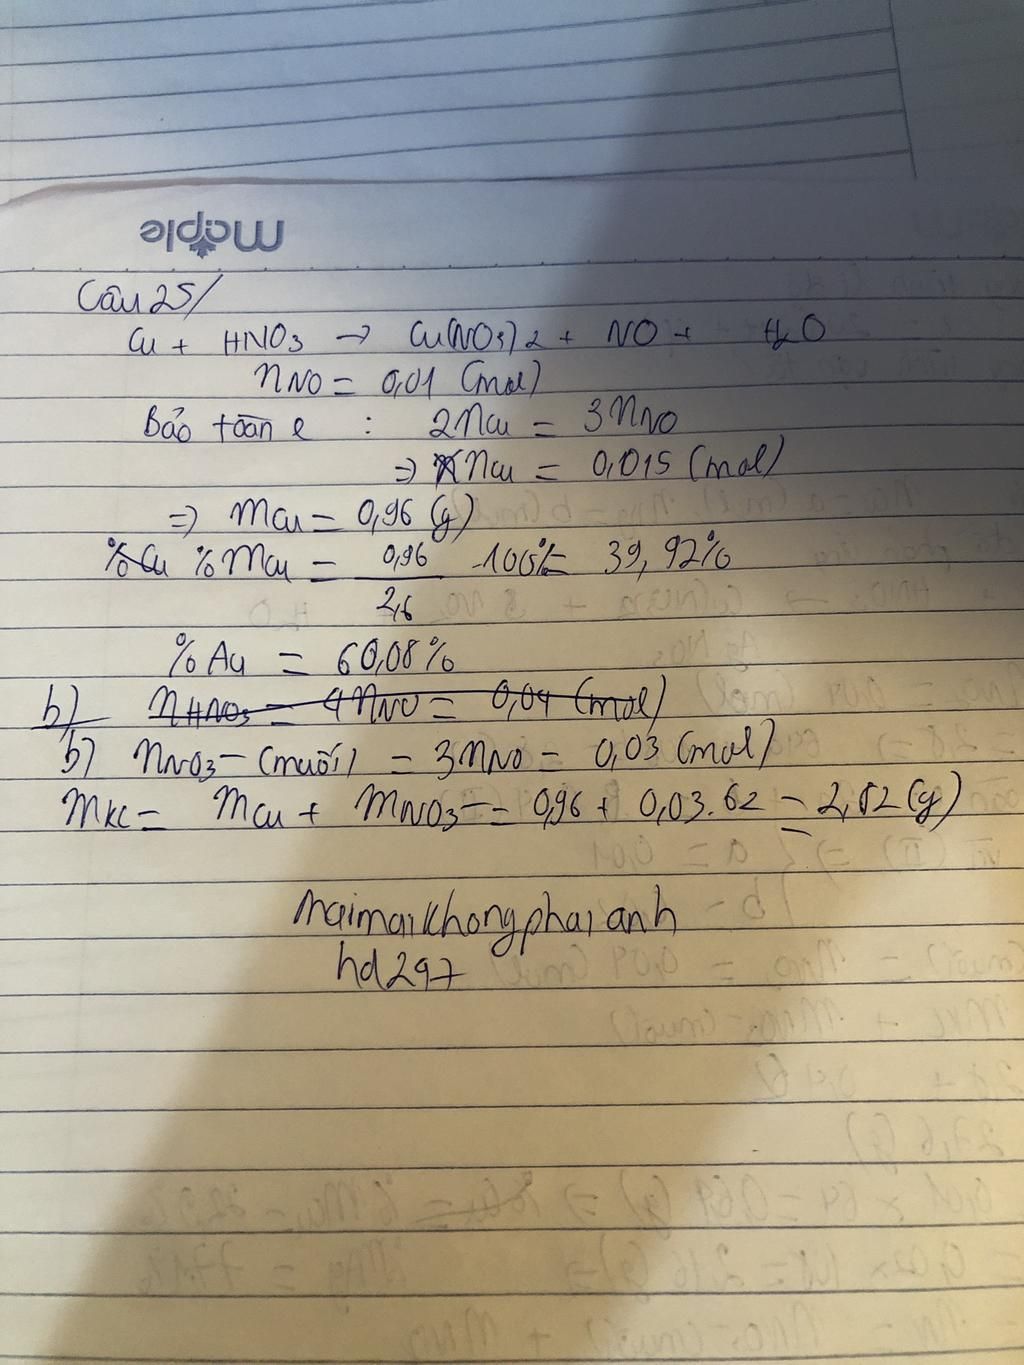 maple
Câu 25/
Cu + HNO3 → Cu(NO3)2 + NO + H2O
nNO = 0,01 (mol)
Bảo toàn e : 2nCu = 3nNO
=> nCu = 0,015 (mol)
=> mCu = 0,96 (g)
%Cu %mCu = 0,96 / 2,6 . 100% = 39,92%
%Au = 60,08%
b) nHNO3 = 4nNO = 0,04 (mol)
b) nNO3- (muối) = 3nNO = 0,03 (mol)
mKL = mCu + mNO3- = 0,96 + 0,03.62 = 2,82 (g)
maimaikhongphaianh
hd297